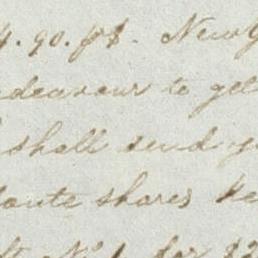 4.90. pd. New
ndeavour to get
shall send y
oute shares be
No 1 for $2